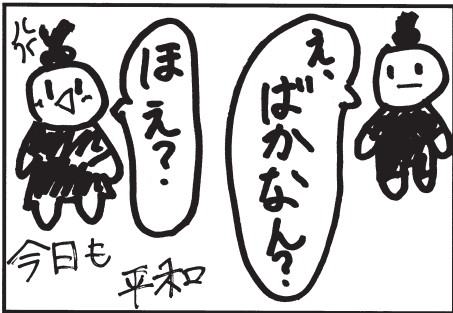 え、ばかなん?
ほえ?
今日も
平和